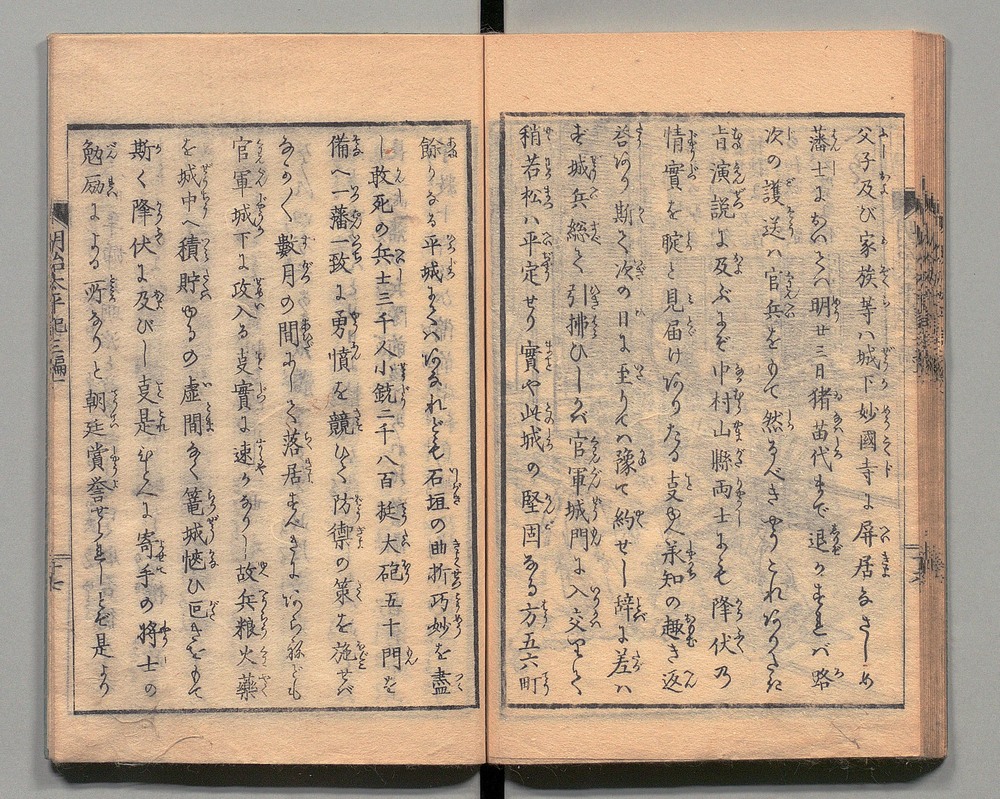 父子及び家族等ハ城下妙國寺に屏居なさしめ
藩士においてハ明廿三日猪苗代まで退かすれバ略
次の護送ハ官兵をもて然るべきやうこれありたき
旨演説に及ぶにぞ中村山縣両士にも降伏乃
情實を聢と見届けありたる叓ゆゑ承知の趣き返
答あり斯て次の日に至りてハ豫て約せし辞に差ハ
ず城兵総て引拂ひしかバ官軍城門に入交りて
稍若松ハ平定せり實や此城の堅固なる方五六町
餘りなる平城にてハあなれども石垣の曲折巧妙を盡
し敢死の兵士三千人小銃二千八百挺大砲五十門を
備へ一藩一致に勇憤を競ひて防禦の策を施せバ
なか〳〵數月の間にして落居すべきにあらねども
官軍城下に攻入る叓實に速かなりし故兵粮火藥
を城中へ積貯ゆるの虚間なく篭城
斯く降伏に及びし叓是ひとへに寄手の将士の
勉励による所なりと朝廷賞誉せられしとぞ是より
明治太平記三編